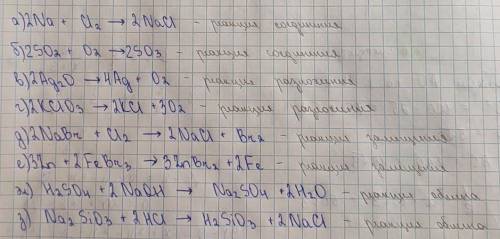 а) 2Na + Cl₂ → 2NaCl - реакция соединения
б) 2SO₂ + O₂ → 2SO₃ - реакция соединения
в) 2Ag₂O → 4Ag + O₂ - реакция разложения
г) 2KClO₃ → 2KCl + 3O₂ - реакция разложения
д) 2NaBr + Cl₂ → 2NaCl + Br₂ - реакция замещения
е) 3Zn + 2FeBr₃ → 3ZnBr₂ + 2Fe - реакция замещения
ж) H₂SO₄ + 2NaOH → Na₂SO₄ + 2H₂O - реакция обмена
з) Na₂SiO₃ + 2HCl → H₂SiO₃ + 2NaCl - реакция обмена